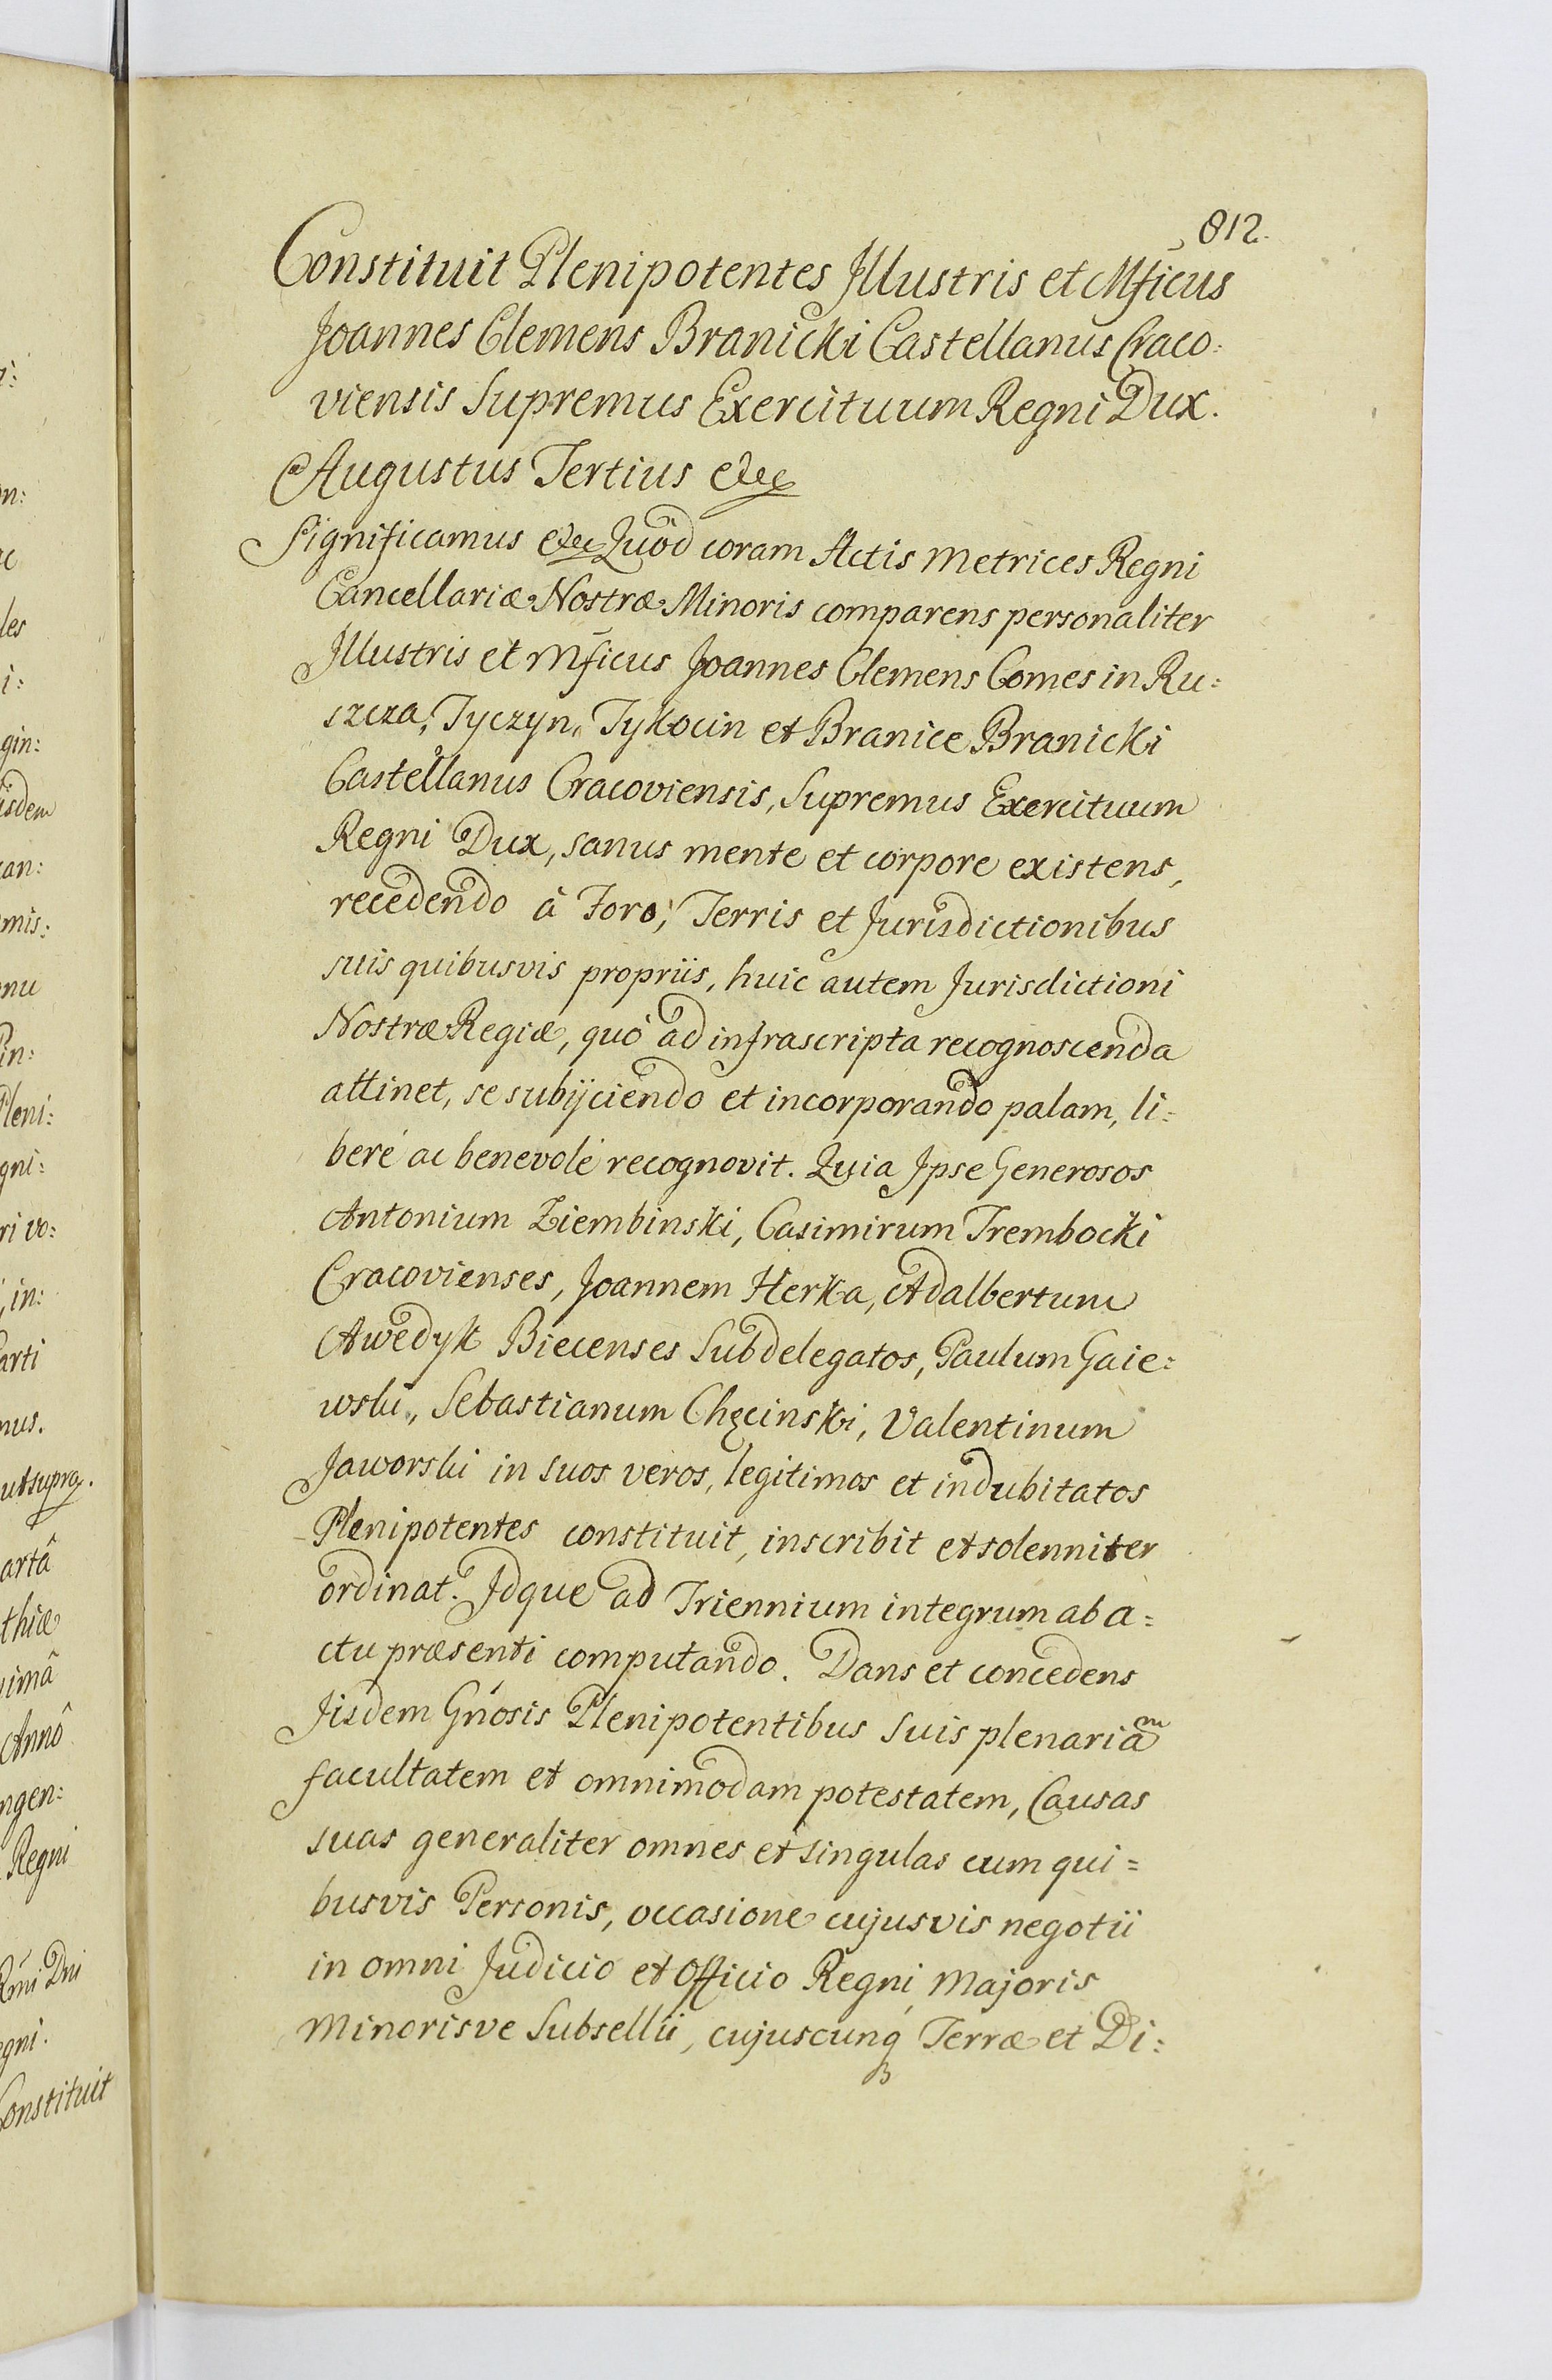 812.
Constituit Plenipotentes Jllustris et Mficus
Joannes Clemens Branicki Castellanus Craco:
viensis Supremus Exercituum Regni Dux.
Augustus Tertius etc
Significamus etc Quod coram Actis Metrices Regni
Cancellariæ Nostræ Minoris comparens personaliter
Jllustris et Mficus Joannes Clemens Comes in Ru:
szcza, Tyczyn, Tykocin et Branice Branicki
Castellanus Cracoviensis, Supremus Exercituum
Regni Dux, sanus mente et corpore existens,
recedendo à Foro, Terris et Jurisdictionibus
suis quibusvis propriis, huic autem Jurisdictioni
Nostræ Regiæ, quò ad infrascripta recognoscenda
attinet, se subijciendo et incorporando palam, li:
beré ac benevolé recognovit. Quia Jpse Generosos
Antonium Ziembinski, Casimirum Trembocki
Cracovienses, Joannem Herka, Adalbertum
Awedyk Biecenses Subdelegatos, Paulum Gaie:
wski, Sebastianum Chęcinski, Valentinum
Jaworski in suos veros, legitimos et indubitatos
Plenipotentes constituit, inscribit et solenniter
ordinat. Jdque ad Triennium integrum ab a:
ctu præsenti computando. Dans et concedens
Jisdem Gnosis Plenipotentibus suis plenariam
facultatem et omnimodam potestatem, Causas
suas generaliter omnes et singulas cum qui=
busvis Personis, occasione cujusvis negotii
in omni Judicio et Officio Regni, Majoris
Minorisve Subsellii, cujuscunq Terræ et Di:
les
gin:
isdem
mis:
Pleni:
gni:
ri vo:
in:
arti
utsupra.
artâ
thiæ
Annô
ngen:
Regni
Dni
Constituit